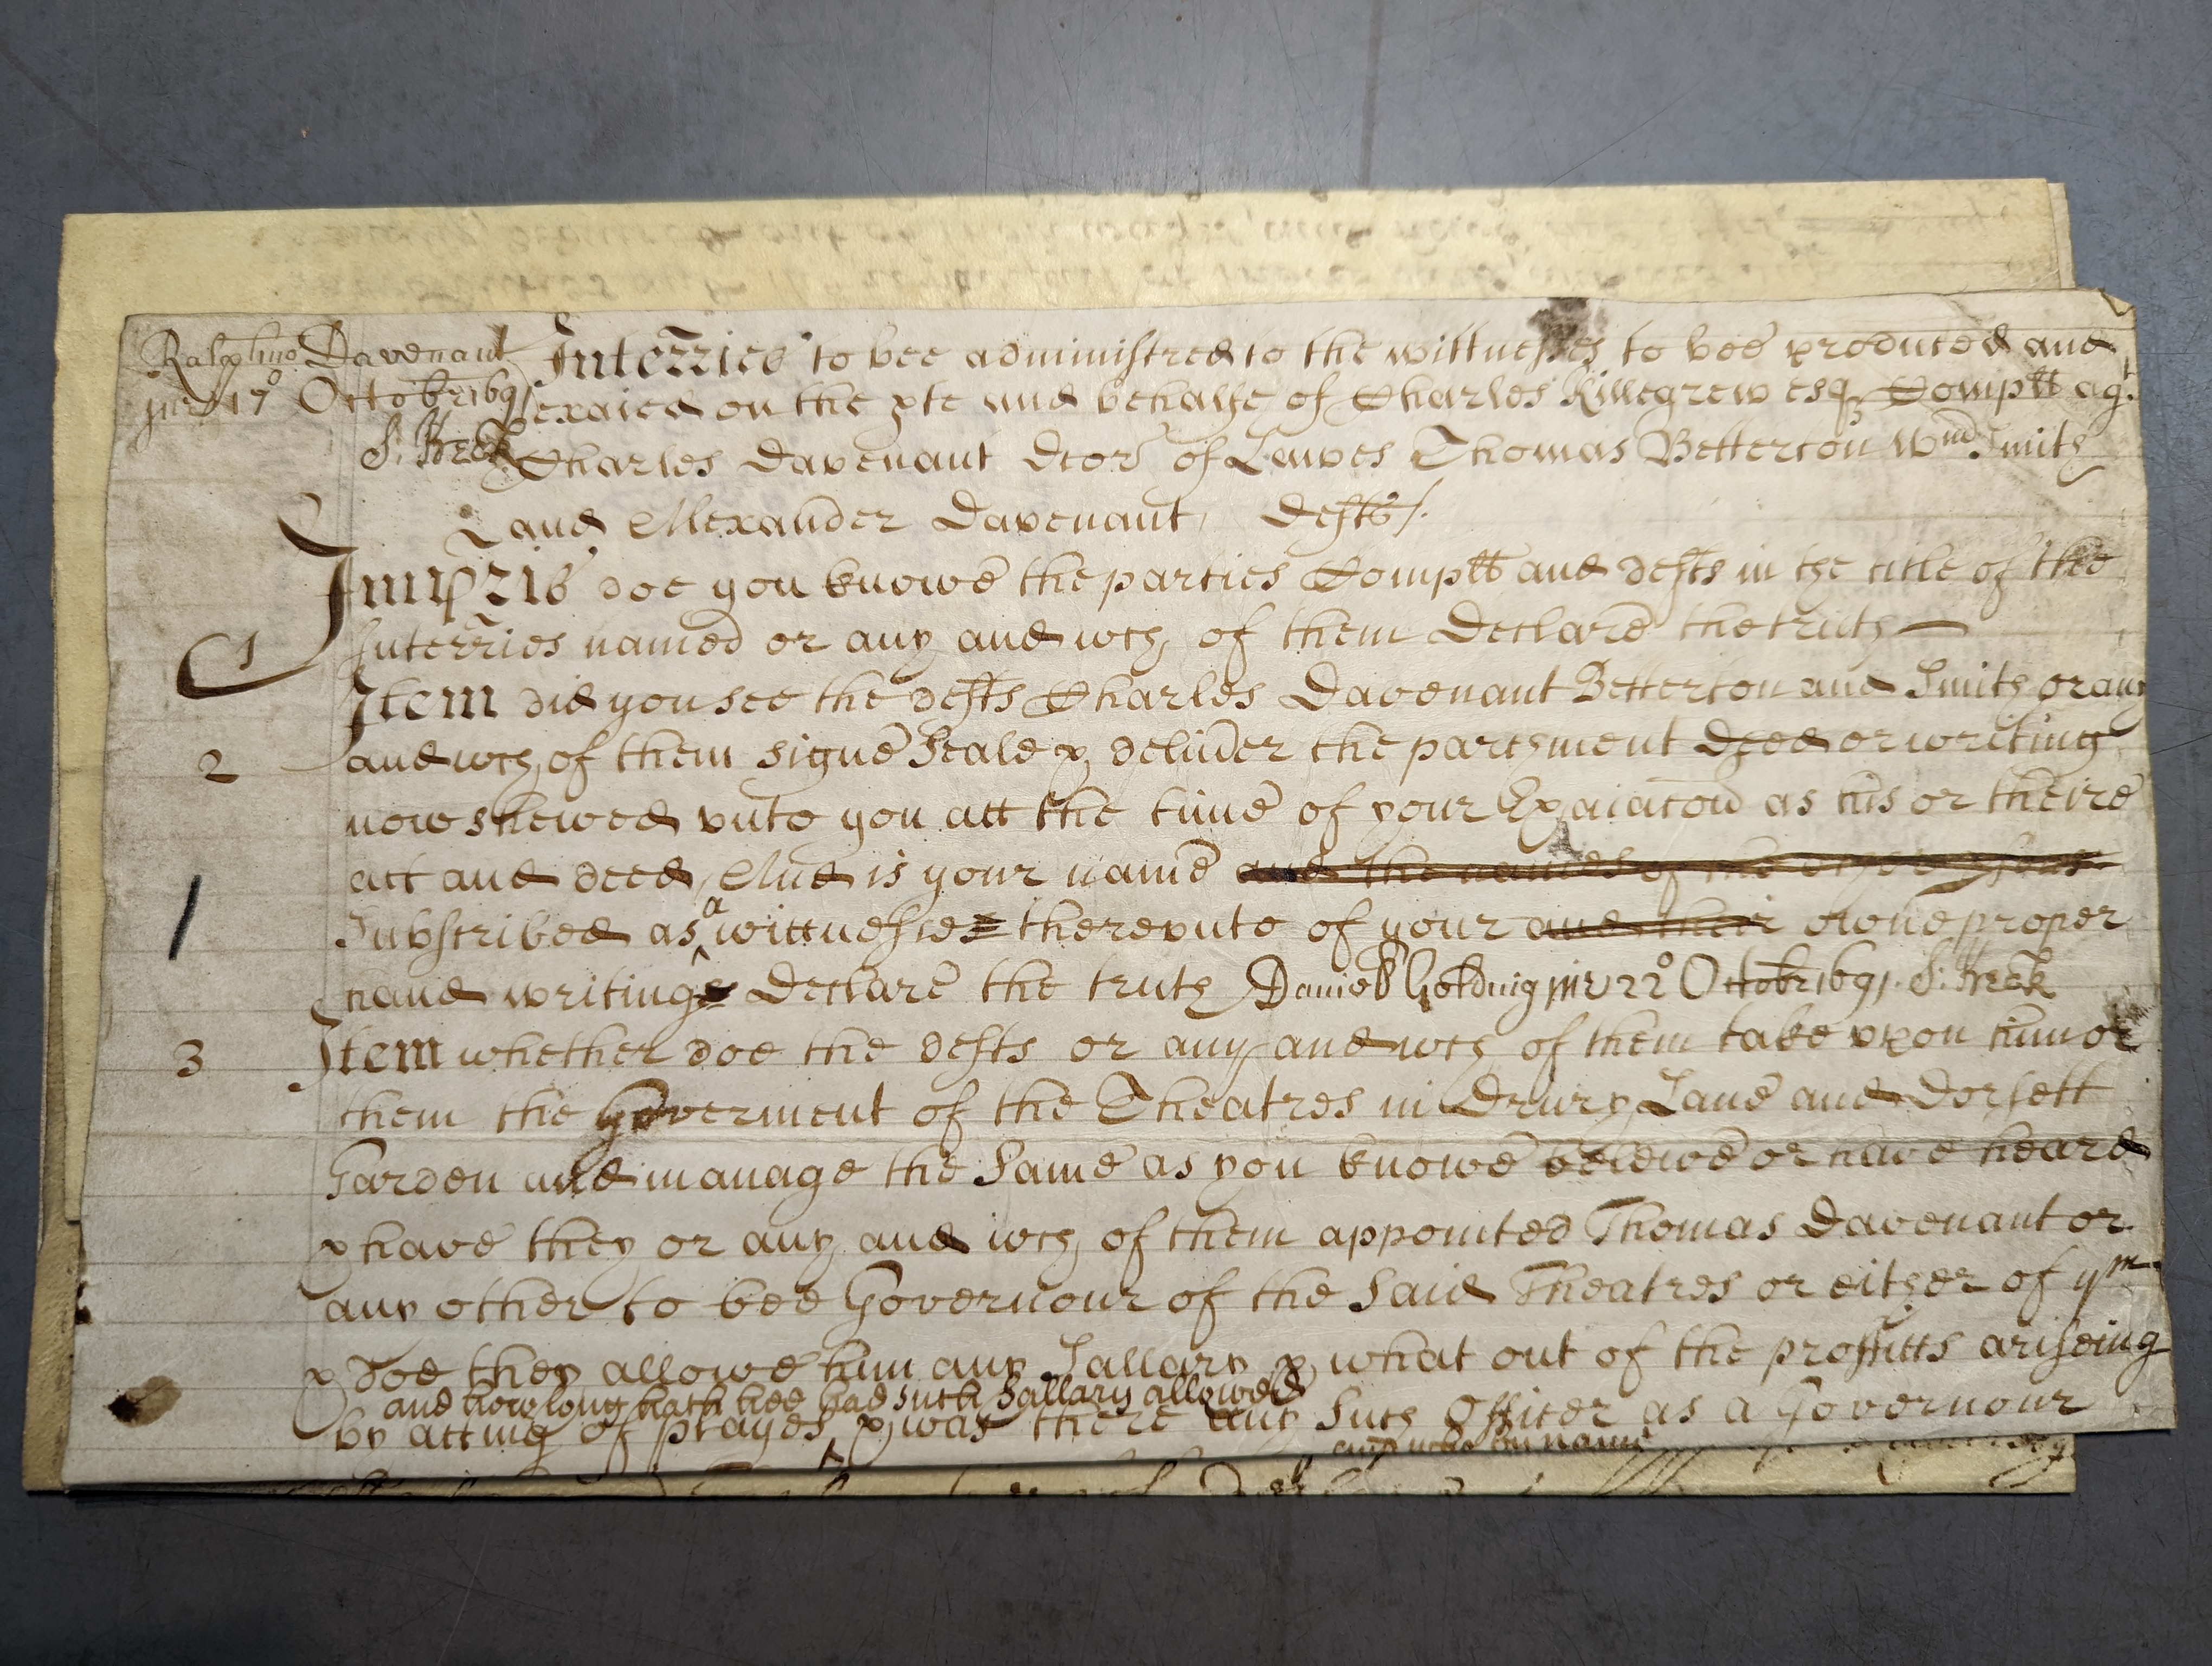 Radphus Davenant
jur 17º Octobr 1691
S: Keck
Interries to bee administred to the wittnesses to bee produced and
exaied on the pte and behalfe of Charles Killegrew esq Complt agt
Charles Davenant Dcor of Lawes Thomas Betterton Wm Smith
and Alexander Davenant Defts
1 Impris doe you knowe the parties Complt and defts in the title of thee
Interries named or any and wch of them Declare the truth
Item did you see the defts Charles Davenant Betterton and Smith or any
2 and wch of them signe Seale & deliver the parchment deed or writing
now shewed unto you att the time of your Exaiacon as his or theire
act and deed, And is your name and the names of the other
Subscribed as a wittnesses thereunto of your and their owne proper
hand writing Declare the truth Daniel Golding jur 22º Octobr 1691. S: Keck
3 Item whether doe the defts or any and wch of them take upon him or
them the Goverment of the Theatres in Drury Lane and Dorsett
Garden and manage the Same as you knowe beleive or have heard
& have they or any and wch of them appointed Thomas Davenant or
any other to bee Governour of the Said Theatres or either of ym
& doe they allowe him any Sallary & what out of the proffitts ariseing
and how long hath hee had such Sallary allowed
by acting of playes & was there any Such Officer as a Governour